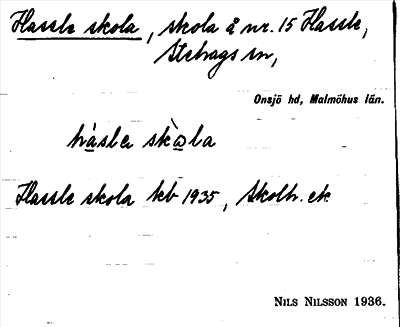 Hassle skola, skola å nr. 15 Hassle,
Stehags sn,
Onsjö hd, Malmöhus län.
hàslɐ skò̱la
Hassle skola kb 1935, Skolh. ek
NILS NILSSON 1936.